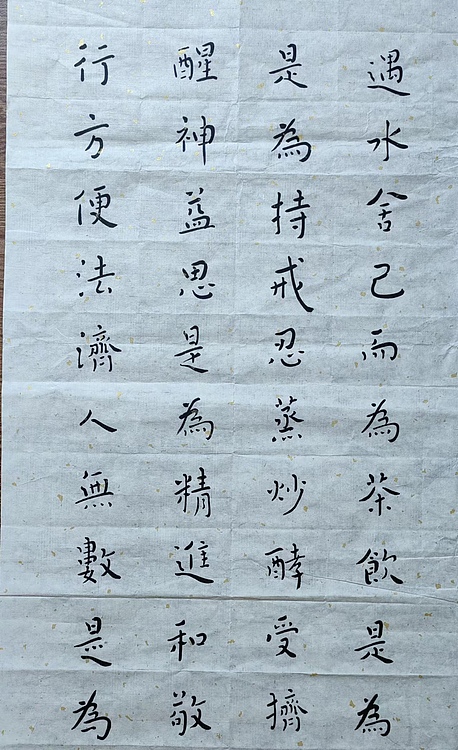 遇水舍己而為茶飲是為
是為持戒忍蒸炒酵受擠
醒神益思是為精進和敬
行方便法濟人無數是為